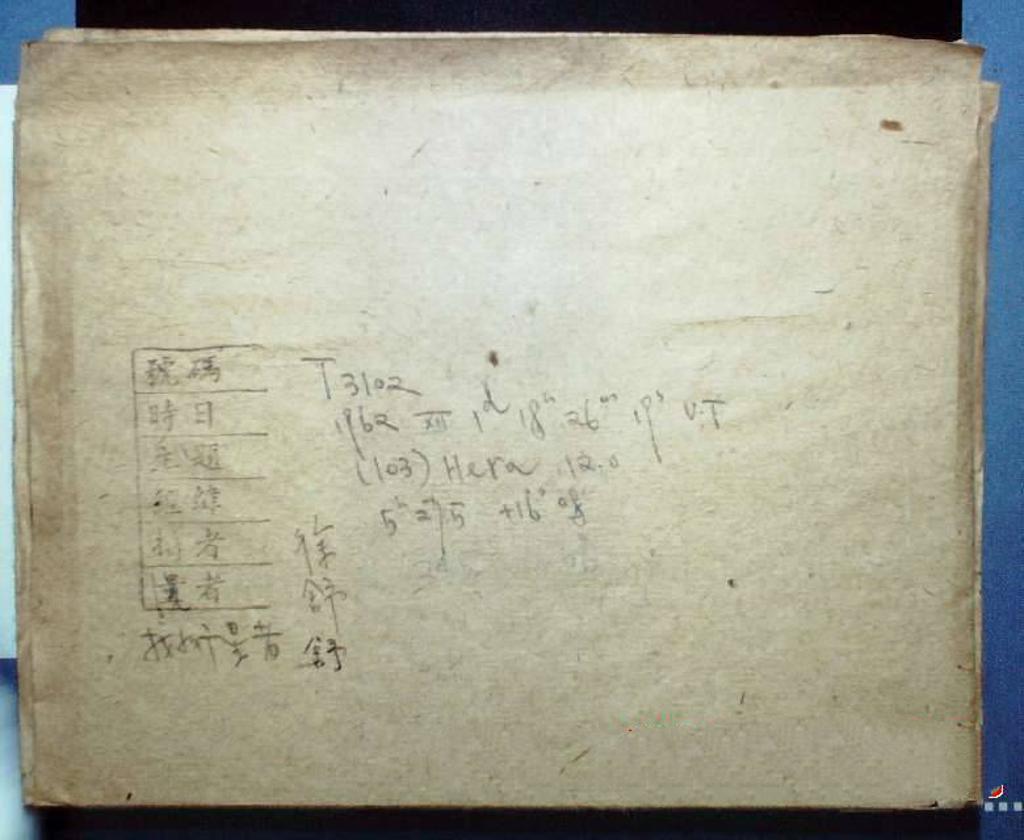 號碼 T 3102
時日 1962 XII 1ᵈ 18ʰ 26ᵐ 19ˢ U.T
主題 (103) Hera 12.0
經緯 5ʰ 27.5 +16° 08'
者 徐
量者 舒
者 舒